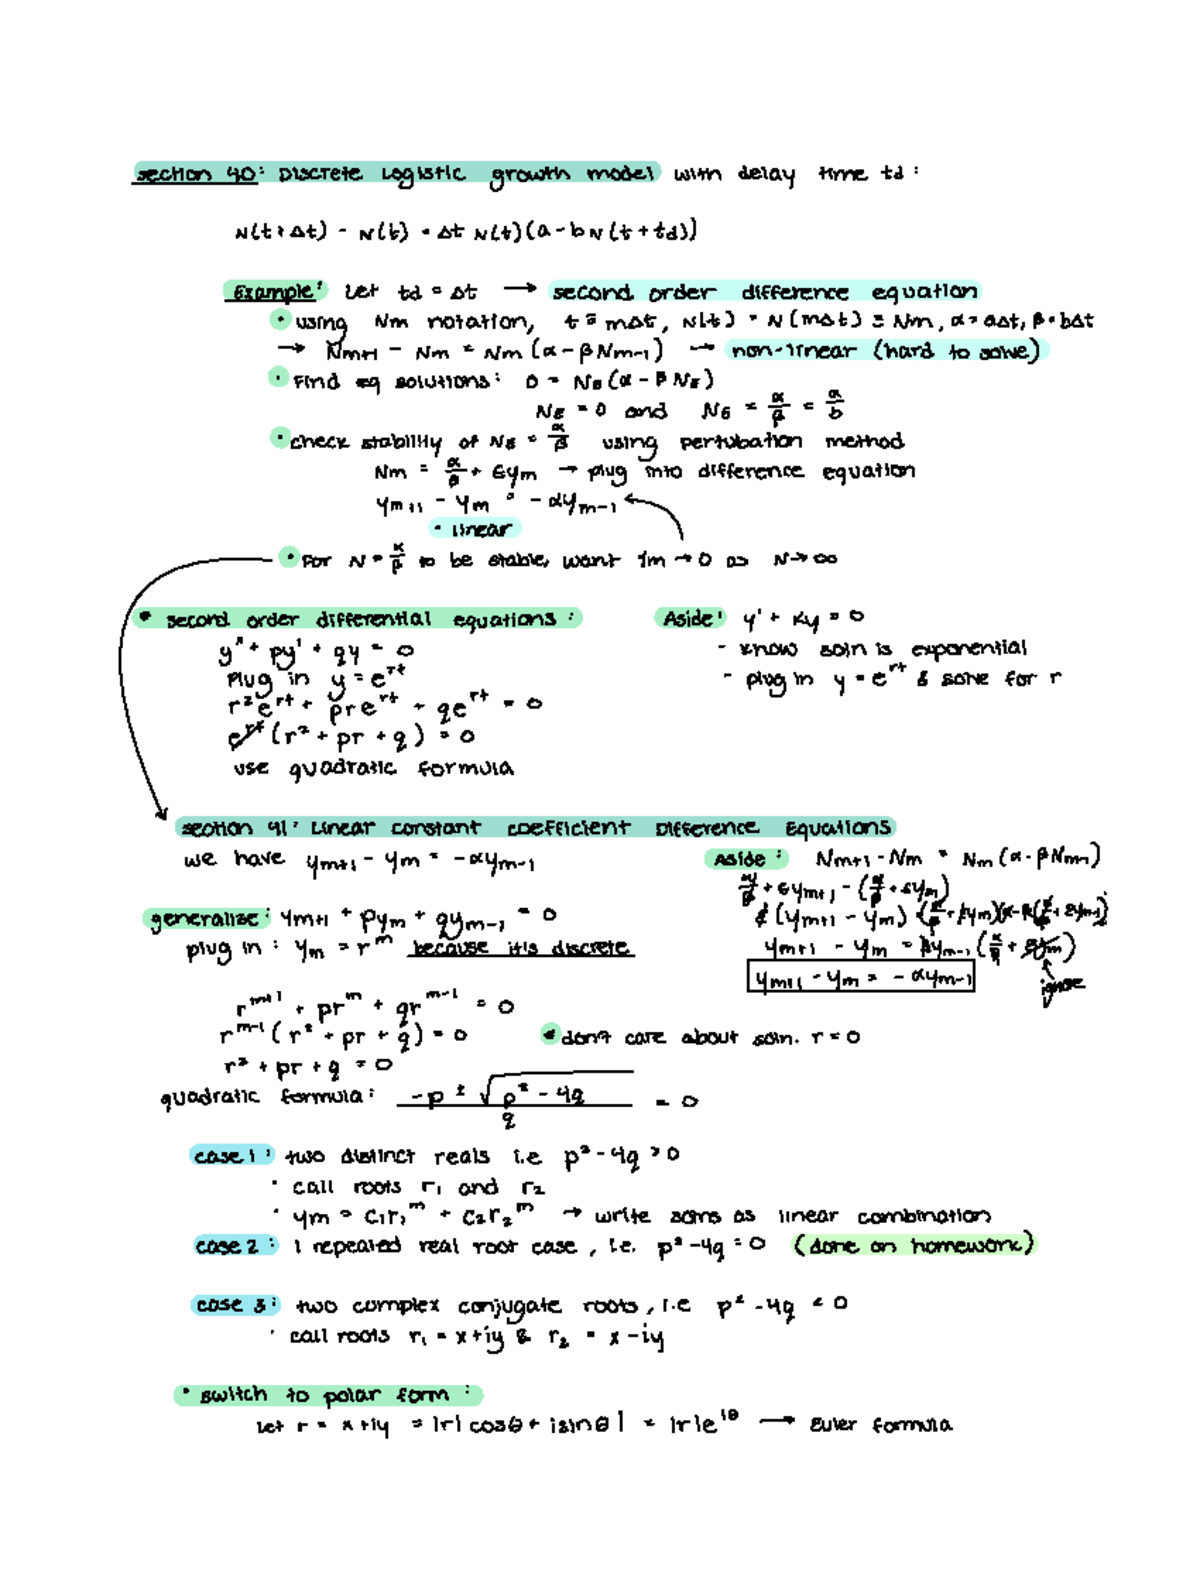 section 40: Discrete Logistic growth model with delay time td:
N(t+Δt) - N(t) = Δt N(t)(a-bN(t+td))
Example: Let td = Δt → second order difference equation
• using Nm notation, t ≡ mΔt, N(t) = N(mΔt) ≡ Nm, α=aΔt, β=bΔt
→ Nm+1 - Nm = Nm(α-βNm-1) → non-linear (hard to solve)
• Find eq solutions: 0 = NE(α-βNE)
NE = 0 and NE = α/β = a/b
• check stability of NE = α/β using pertubation method
Nm = α/β + εym → plug into difference equation
ym+1 - ym = -αym-1
• linear
• For N = α/β to be stable, want ym → 0 as N→∞
* second order differential equations:
y" + py' + qy = 0
Plug in y = e^rt
r²e^rt + pre^rt + qe^rt = 0
e^rt(r² + pr + q) = 0
use quadratic formula
Aside: y' + Ky = 0
- know soln is exponential
- plug in y = e^rt & solve for r
section 41: Linear constant coefficient Difference Equations
we have ym+1 - ym = -αym-1
generalize: ym+1 + pym + qym-1 = 0
plug in: ym = r^m because it is discrete
Aside: Nm+1 - Nm = Nm(α-βNm-1)
α/β + εym+1 - (α/β + εym)
ε(ym+1 - ym)
ym+1 - ym =
ym+1 - ym = -αym-1
ignore
r^m+1 + pr^m + qr^m-1 = 0
r^m-1(r² + pr + q) = 0 * don't care about soln. r = 0
r² + pr + q = 0
quadratic formula: -p ± √p² - 4q / q = 0
case 1: two distinct reals i.e p² - 4q > 0
• call roots r1 and r2
• ym = c1r1^m + c2r2^m → write solns as linear combination
case 2: 1 repeated real root case, i.e. p² - 4q = 0 (done on homework)
case 3: two complex conjugate roots, i.e p² - 4q < 0
• call roots r1 = x+iy & r2 = x-iy
• switch to polar form:
Let r = x+iy = |r| cosθ + isinθ| = |r|e^iθ → Euler formula